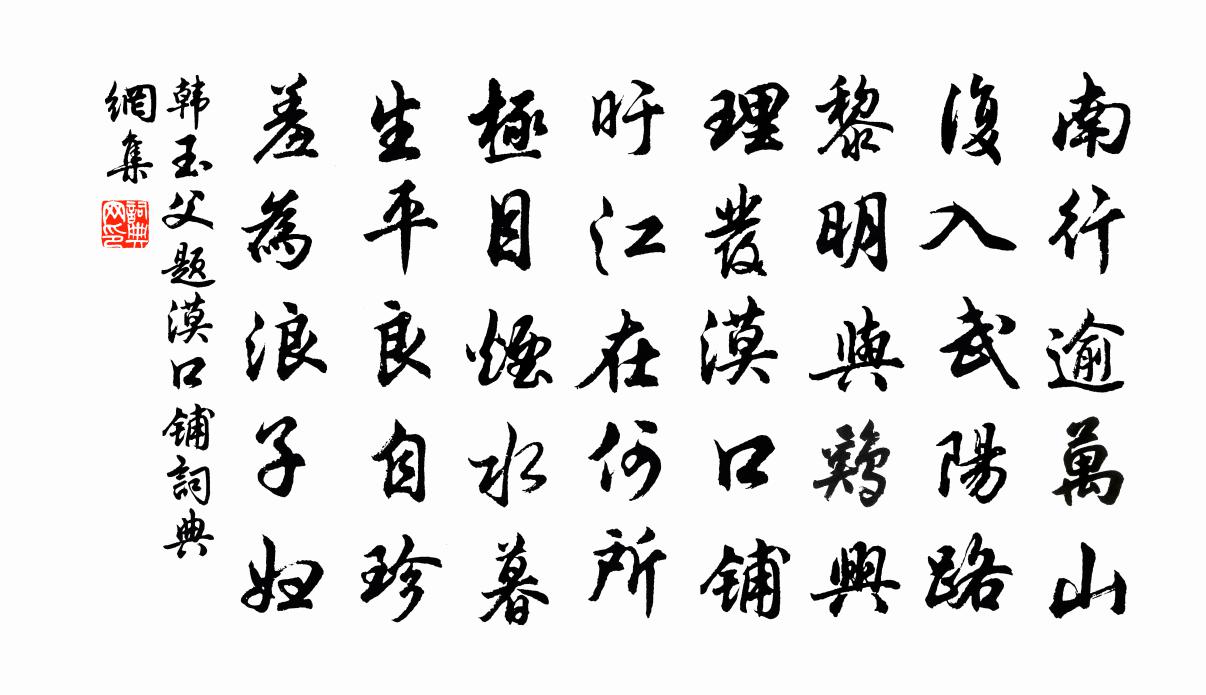 南行逾萬山
復入武陽路
黎明與鷄興
理發漠口鋪
旴江在何所
極目煙水暮
生平良自珍
羞為浪子妇
韩玉父题漠口铺詞典
網集
詞典
网印